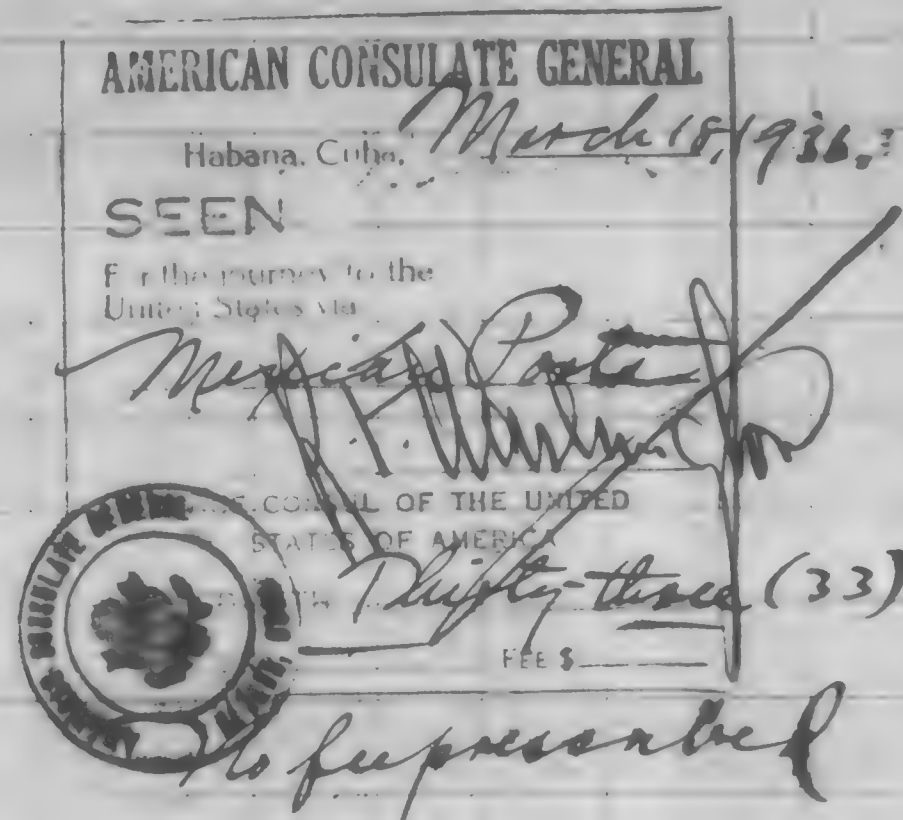 AMERICAN CONSULATE GENERAL
Habana, Cuba, March 18, 1936.
SEEN
For the journey to the
United States via
Mexican Ports
CONSUL OF THE UNITED
STATES OF AMERICA
Thirty-three (33)
FEE $
No fee prescribed